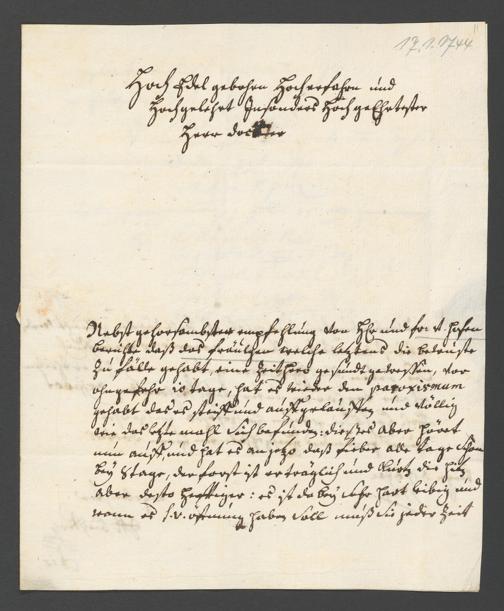 17.1.1744
Hoch Edel gebohrn Hocherfahrn und
Hochgelehrt Insonders HochgeEhrtester
Herr docter
Nebst gehorsambster empfehlung von Hr und fr: v. Hosen
berichte daß das fräulein welche letztens die bewuste
Zu fälle gehabt, eine Zeithero gesund gewessen, vor
ohngefehr 10 tage, hat es wieder den paroxismum
gehabt das es steiff und auß und völlig
wie das letzte mahl sich befunden: dießes aber höret
nun auff und hat es anjetzo daß fieber alle Tage schon
bey tage, der forst ist erträglich und kurtz die hitz
aber desto hefftiger: es ist da bey sehr hart leibig und
wann es s.v. öfnung haben soll muß sie jeder Zeit